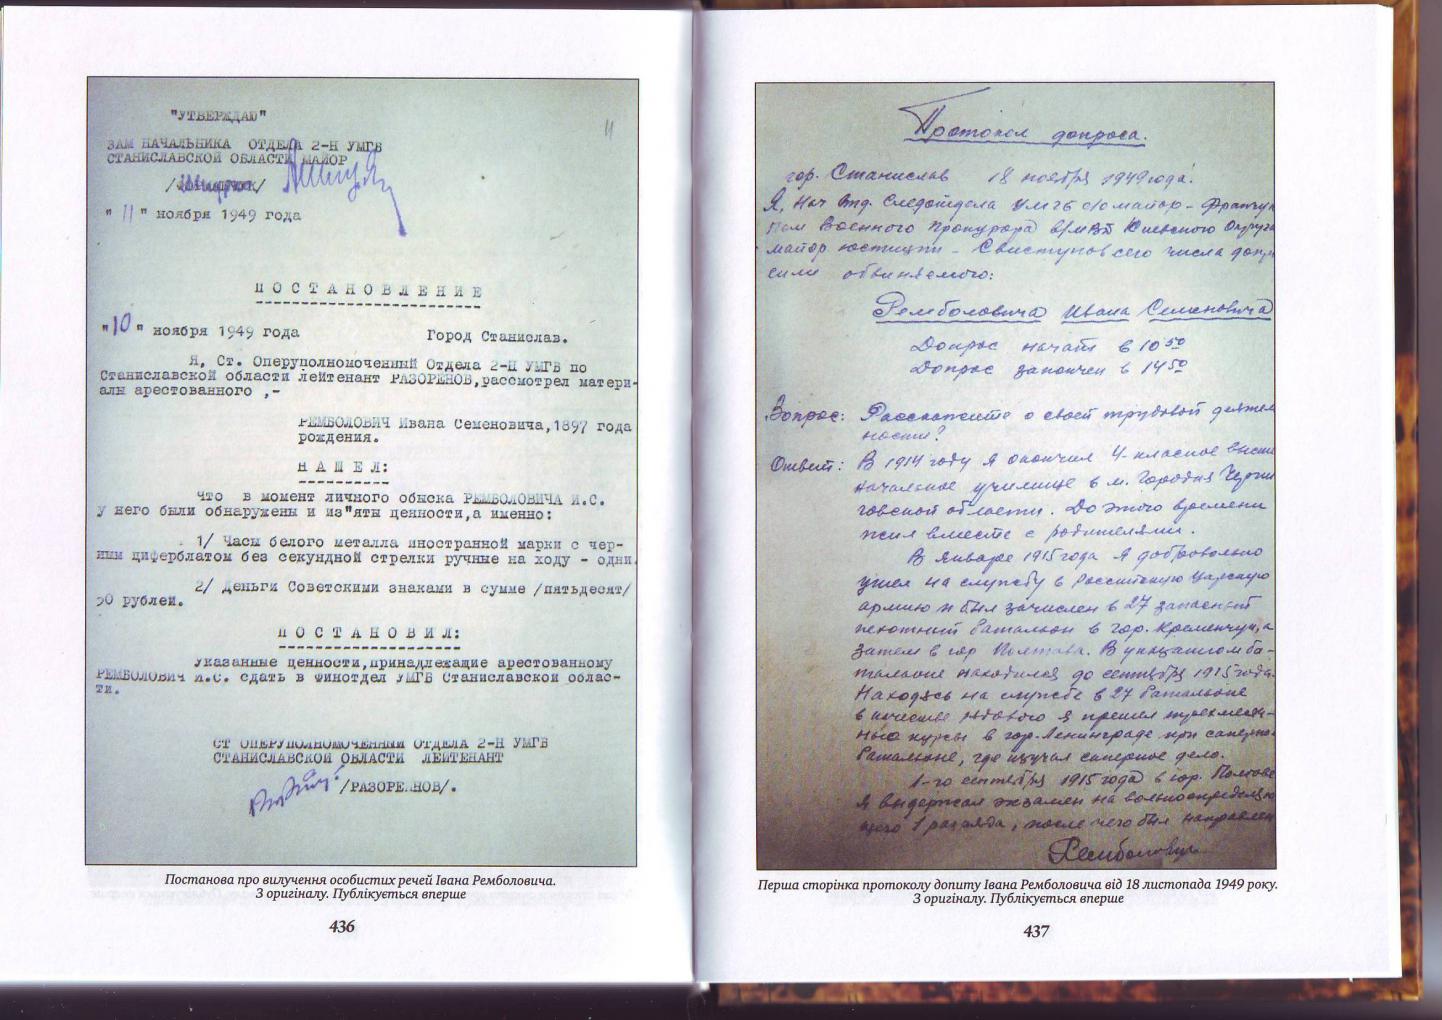 "УТВЕРЖДАЮ"
11
ЗАМ НАЧАЛЬНИКА ОТДЕЛА 2-Н УМГБ
СТАНИСЛАВСКОЙ ОБЛАСТИ МАЙОР
" 11 " ноября 1949 года
ПОСТАНОВЛЕНИЕ
"10" ноября 1949 года Город Станислав.
Я, Ст. Оперуполномоченный Отдела 2-Н УМГБ по
Станиславской области лейтенант РАЗОРЕНОВ,рассмотрел матери-
алы арестованного ,-
РЕМБОЛОВИЧ Ивана Семеновича,1897 года
рождения.
НАШЕЛ:
Что в момент личного обыска РЕМБОЛОВИЧА И.С.
у него были обнаружены и из"яты ценности,а именно:
1/ Часы белого металла иностранной марки с чер-
ным циферблатом без секундной стрелки ручные на ходу - одни.
2/ Деньги Советскими знаками в сумме /пятьдесят/
50 рублей.
ПОСТАНОВИЛ:
Указанные ценности,принадлежащие арестованному
РЕМБОЛОВИЧ И.С. сдать в Финотдел УМГБ Станиславской облас-
ти.
СТ ОПЕРУПОЛНОМОЧЕННЫЙ ОТДЕЛА 2-Н УМГБ
СТАНИСЛАВСКОЙ ОБЛАСТИ ЛЕЙТЕНАНТ
/РАЗОРЕНОВ/.
Постанова про вилучення особистих речей Івана Ремболовича.
З оригіналу. Публікується вперше
436
Протокол допроса.
гор. Станислав 18 ноября 1949 года.
Я, Нач отд. Следотдела УМГБ с/о майор - Франчук
Пом Военного Прокурора в/мвд Киевского Округа
майор юстиции - Свистунов сего числа допро
сили обвиняемого:
Ремболовича Ивана Семеновича
Допрос начат в 10 50
Допрос закончен в 14 50
Вопрос: Расскажите о своей трудовой деятель
ности?
Ответ: В 1914 году я окончил 4-класное высше
начальное училище в м. Городня Черни
говской области. До этого времени
жил вместе с родителями.
В Январе 1915 года я добровольно
ушел на службу в Российскую Царскую
армию и был зачислен в 27 запасной
пехотний батальон в гор. Кременчуг, а
затем в гор Полтава. В указаном ба-
тальоне находился до сентября 1915 года.
Находясь на службе в 27 батальоне
в качестве рядового я прошел трехмесяч-
ные курсы в гор. Ленинграде при саперно
батальоне, где изучал саперное дело.
1-го сентября 1915 года в гор. Полтаве
я выдержал экзамен на вольноопределяю
щего 1 разряда, после чего был направлен
Ремболович
Перша сторінка протоколу допиту Івана Ремболовича від 18 листопада 1949 року.
З оригіналу. Публікується вперше
437